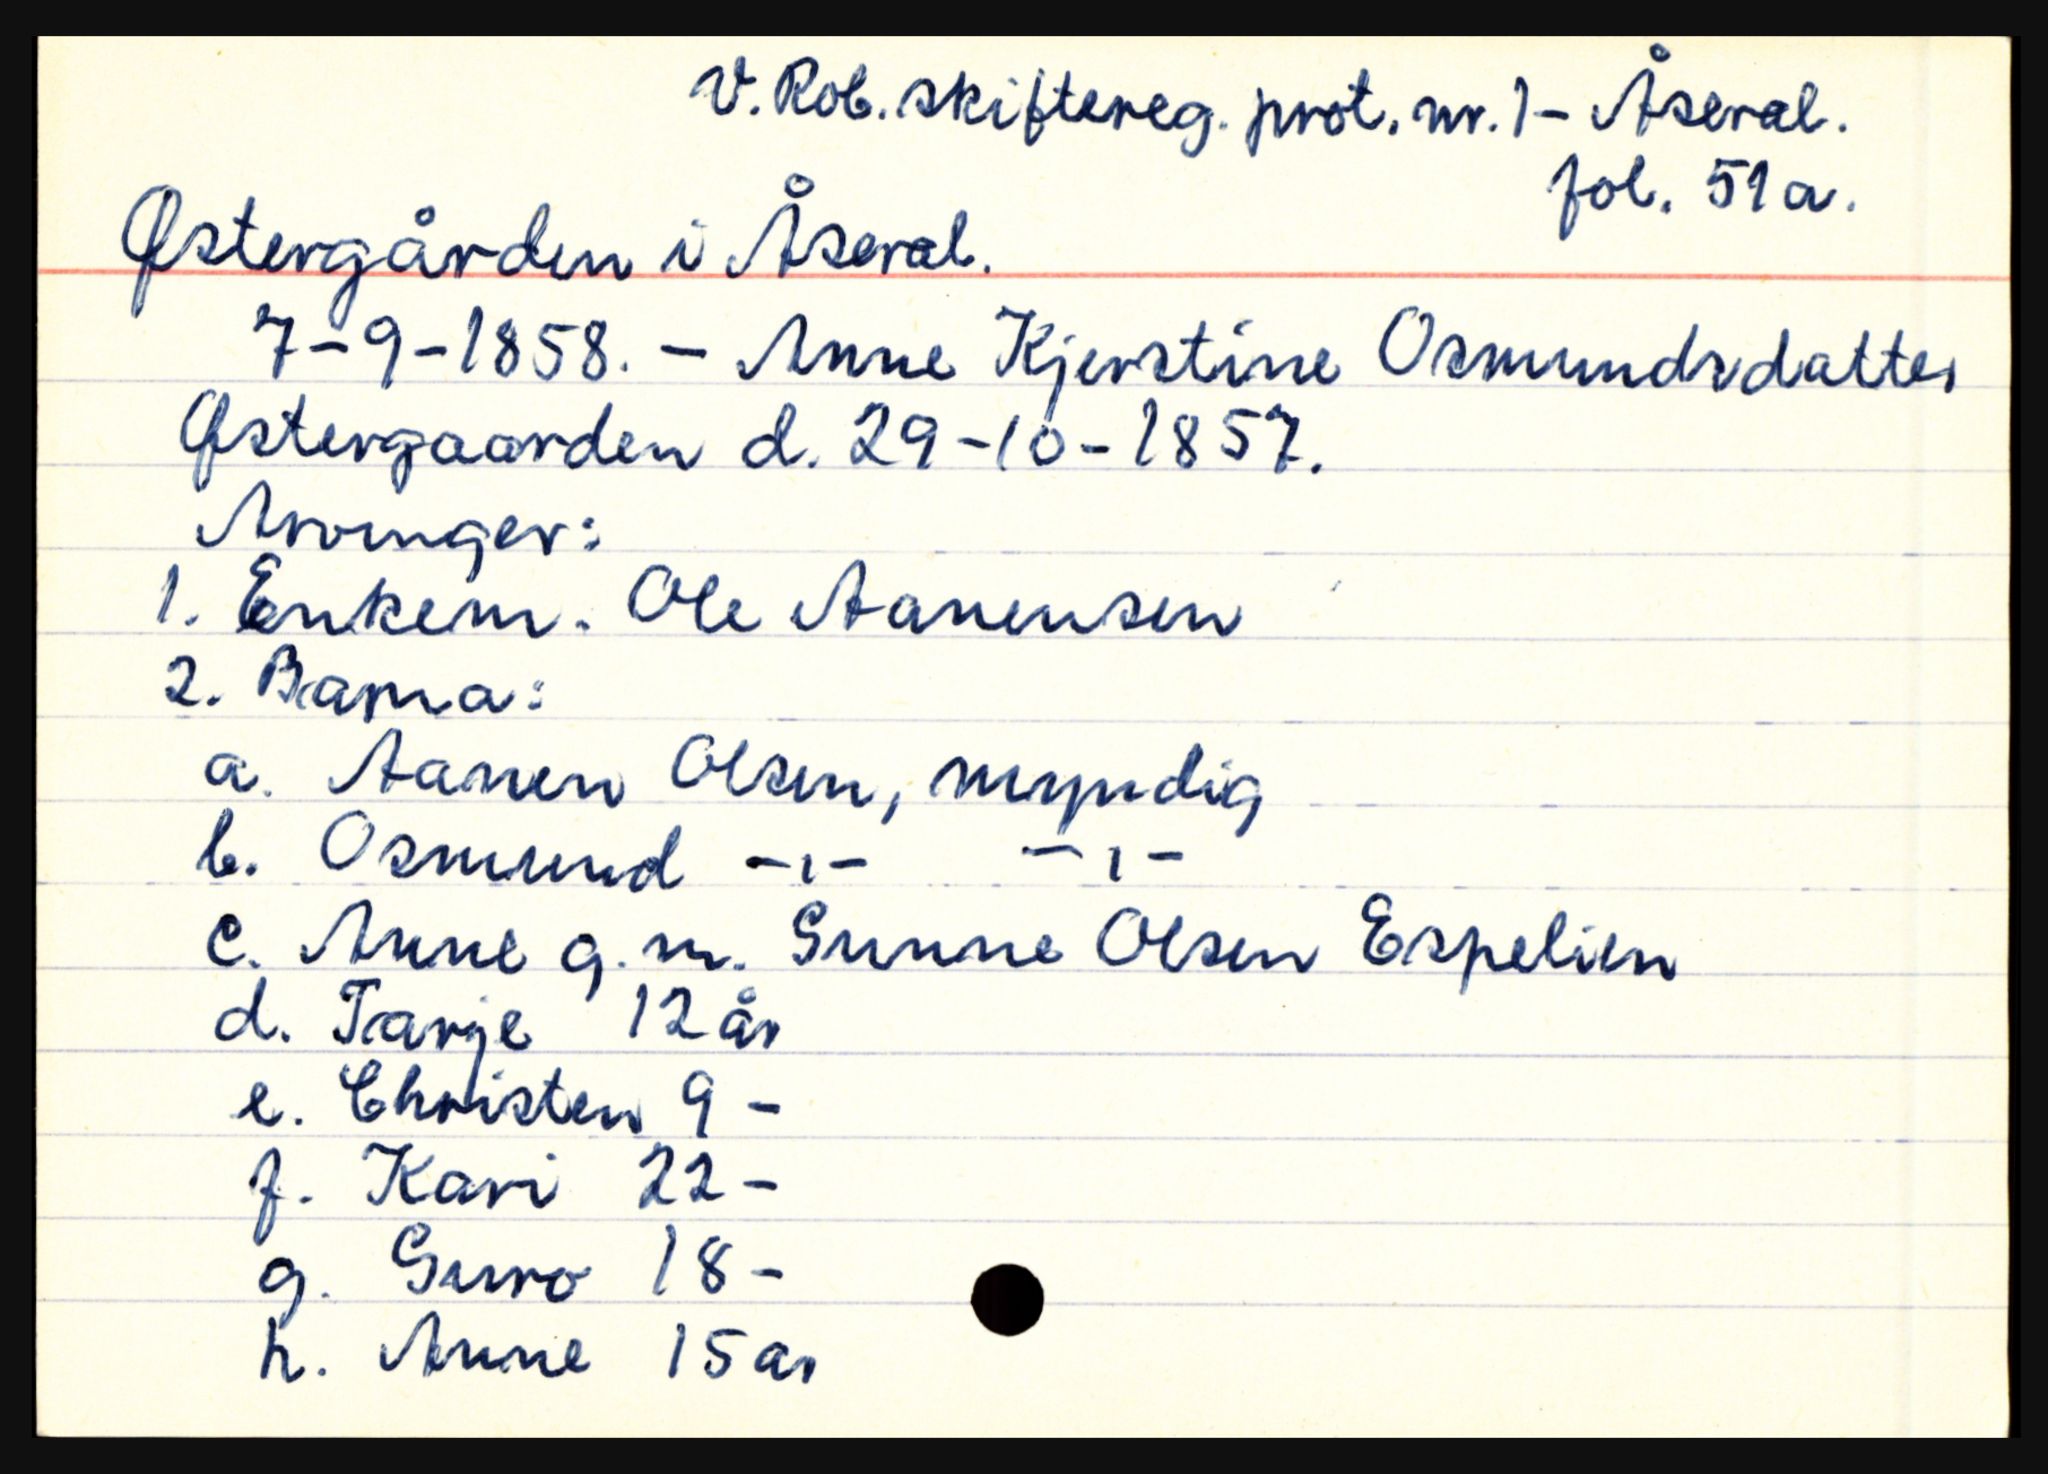 V. Rob. skiftereg. prot. nr. 1 - Åseral.
fol. 51a.
Østergården i Åseral.
7-9-1858. - Anne Kjerstine Osmundsdatter
Østergaarden d. 29-10-1857.
Arvinger:
1. Enkem. Ole Aanensen
2. Barna:
a. Aanen Olsen, myndig
b. Osmund -ı- -ı-
c. Anne g. m. Gunne Olsen Espelien
d. Tarje 12 år
e. Christen 9 -
f. Kari 22 -
g. Guro 18 -
h. Anne 15 ar